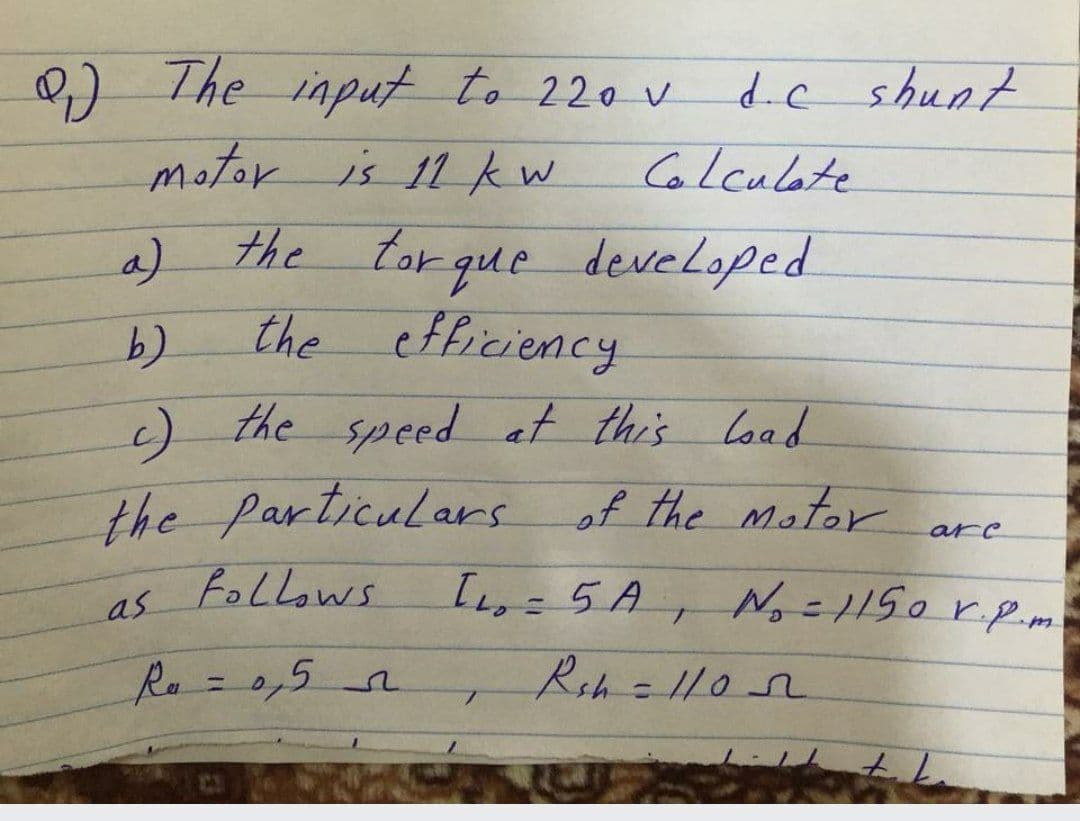 Q1) The input to 220 v d.c shunt
motor is 11 kw Calculate
a) the torque developed
b) the efficiency
c) the speed at this load
the particulars of the motor are
as follows IL₀ = 5 A , N₀ = 1150 r.p.m
Ra = 0,5 Ω , Rsh = 110 Ω